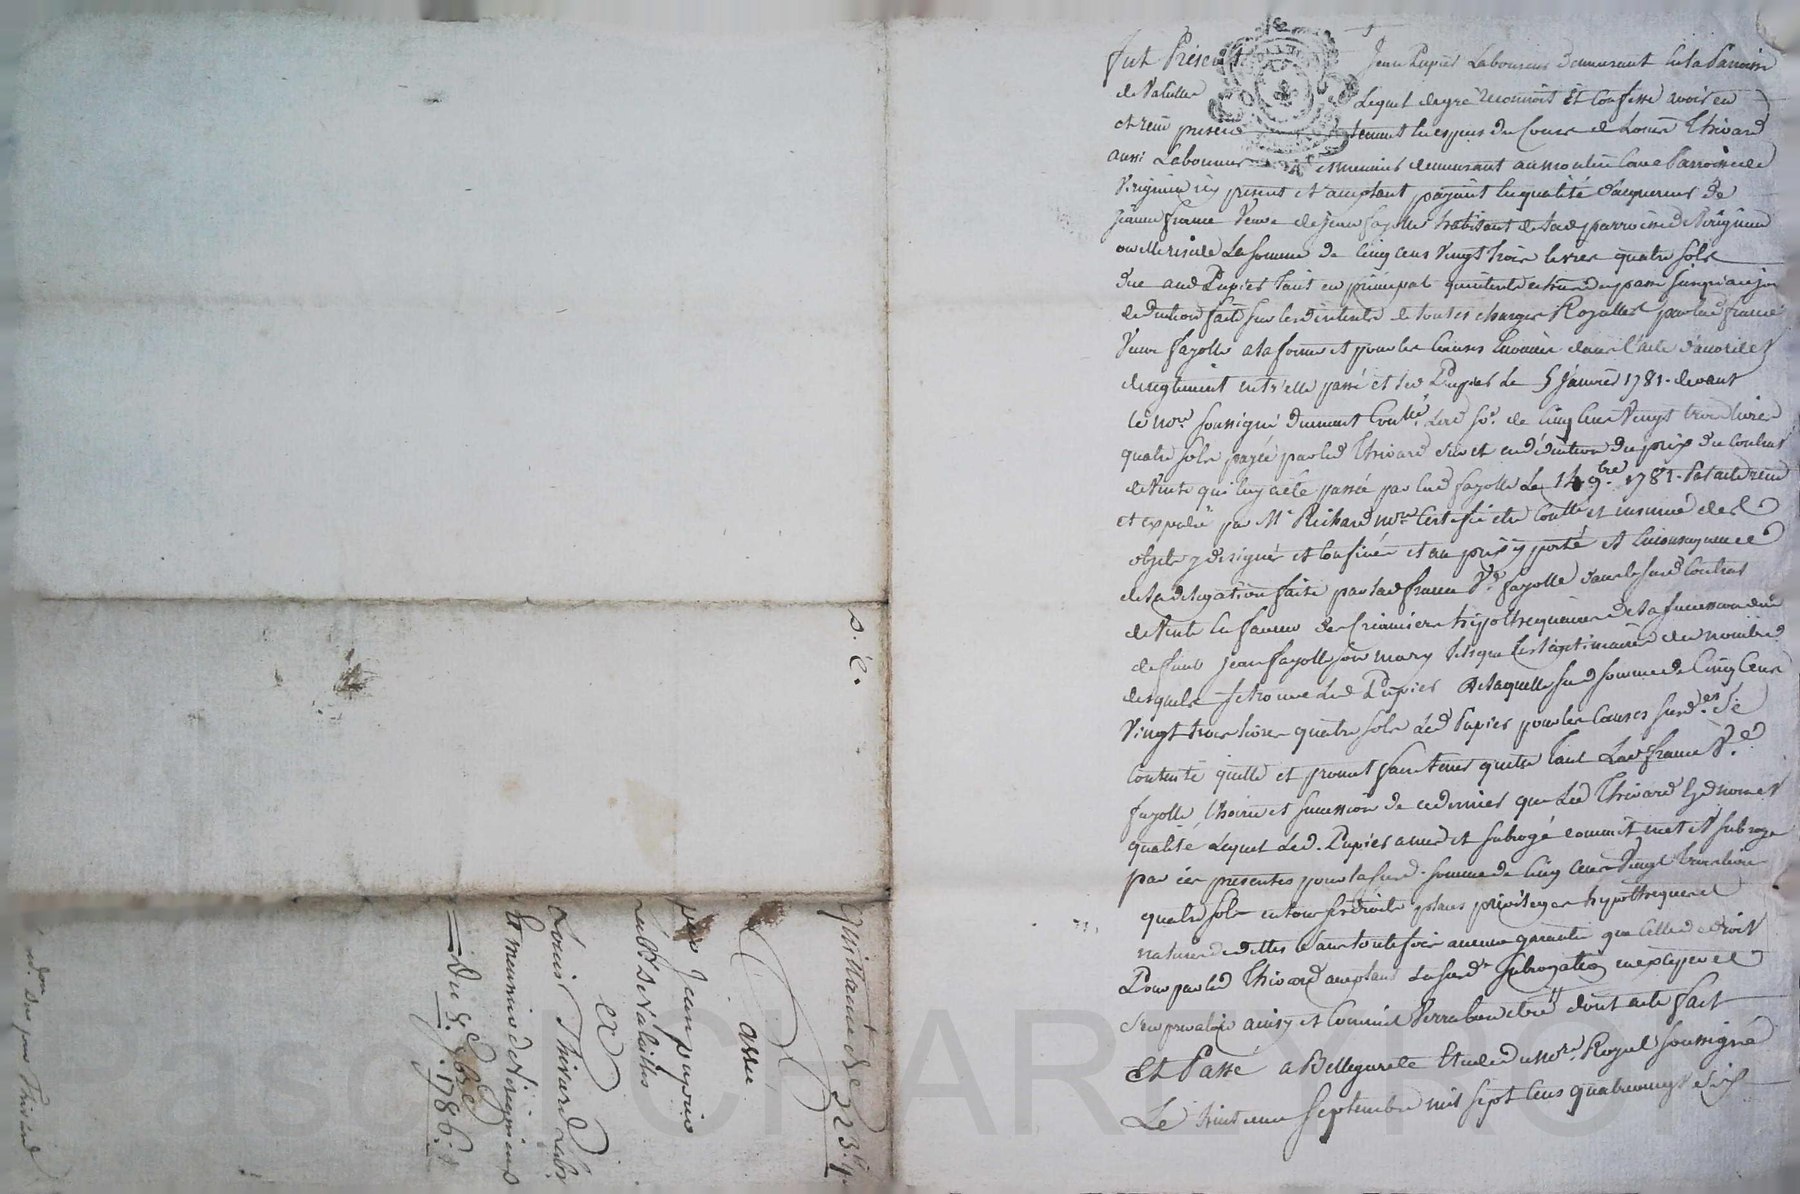 Fut Présent Jean Pupier Laboureur demeurant en la Parroisse
de Valeille Lequel de gré reconnoit Et Confesse avoir eu
et recu présentement en especes du Cours de Louis Thivard
aussi Laboureur et meunier demeurant au moulin Parroisse de
Virignieu icy present et acceptant payant en qualité d'acquereur de
jeanne france Veuve de jean fayolle habitant de lad parroisse de Virignieu
ou elle reside La somme de Cinq Cens Vingt trois livres quatre sols
due aud Pupier tant en principal qu'interets jusqu'a ce jour
deduction faite sur lesd interets de toutes charges Royalles par lad france
Veuve fayolle a la forme et pour les Causes Enoncées dans l'acte d'accord et
de reglement entr'elle passé et led Pupier Le 5 janvier 1781. devant
le Nore. soussigné duement Conllé. Lad se. de Cinq Cens Vingt trois livres
quatre sols payée par led Thivard sur et en déduction du prix du Contrat
de Vente qui luy a eté passée par lad fayolle Le 14 9.bre 1781. et acte recu
et expedié par Me Richard nore Certifié etre Conllé et insinué des
objets y designés et Confinés et au prix y porté et En Consequence
de la delegation faite par lad france Ve. fayolle dans le susd Contrat
de Vente En faveur des Creanciers hypothequaires de la succession de
defunt jean fayolle son mary et legitimaires du nombre
desquels se trouve Led Pupier De laquelle sud somme de Cinq Cens
Vingt trois livres quatre sols Led Pupier pour les Causes susd.es Se
Contente quitte et promet faire tenir quitte tant Lad france Ve.
fayolle, l'hoirie et succession de ce dernier que Led Thivard Esd noms et
qualité Lequel Led. Pupier a mis et subrogé comme il met et subroge
par ces presentes pour la susd. somme de Cinq Cens Vingt trois livres
quatre sols en tous ses droits places privileges hypotheques et
nature de dettes sans toutefois aucune garantie que Celle de droit
Pour par led Thivard acceptant La susd subrogation
s'en prevaloir ainsy et Comme il Verra bon etre dont acte fait
Et Passé a Bellegarde Etude du nore. Royal soussigné
Le trente un Septembre mil sept Cens quatrevingt Six
S. C.
Quittance de 523.l 4s
assée
par Jean pupier
Labr. de Valeilles
a
Louis Thivard Labr.
et meunier de Virignieux
Du 7.bre 1786.
don
Thivard
CHARLYRON